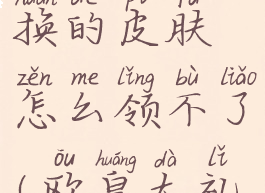 huàn de pí fū
换的皮肤
zěn me lǐng bù liǎo
怎么领不了
ōu huáng dà lǐ
(欧皇大礼